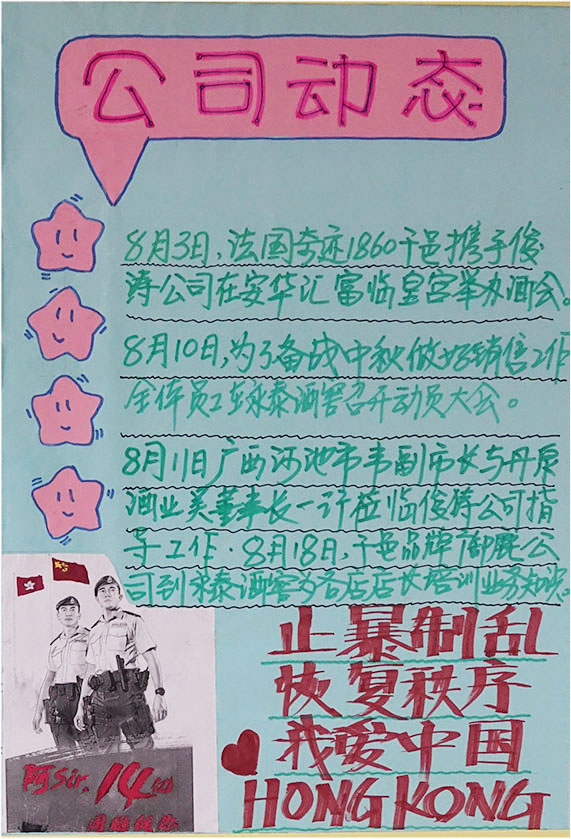 公司动态
8月3日，法国奇迹1860干邑携手俊
涛公司在安华汇富临皇宫举办酒会。
8月10日，为了备战中秋做好销售工作
全体员工在永泰酒窖召开动员大会。
8月11日广西河池市韦副市长与丹泉
酒业吴董事长一行莅临俊涛公司指
导工作．8月18日，干邑品牌御鹿公
司到永泰酒窖为各店店长培训业务知识。
止暴制乱
恢复秩序
我爱中国
HONG KONG
阿Sir，14亿